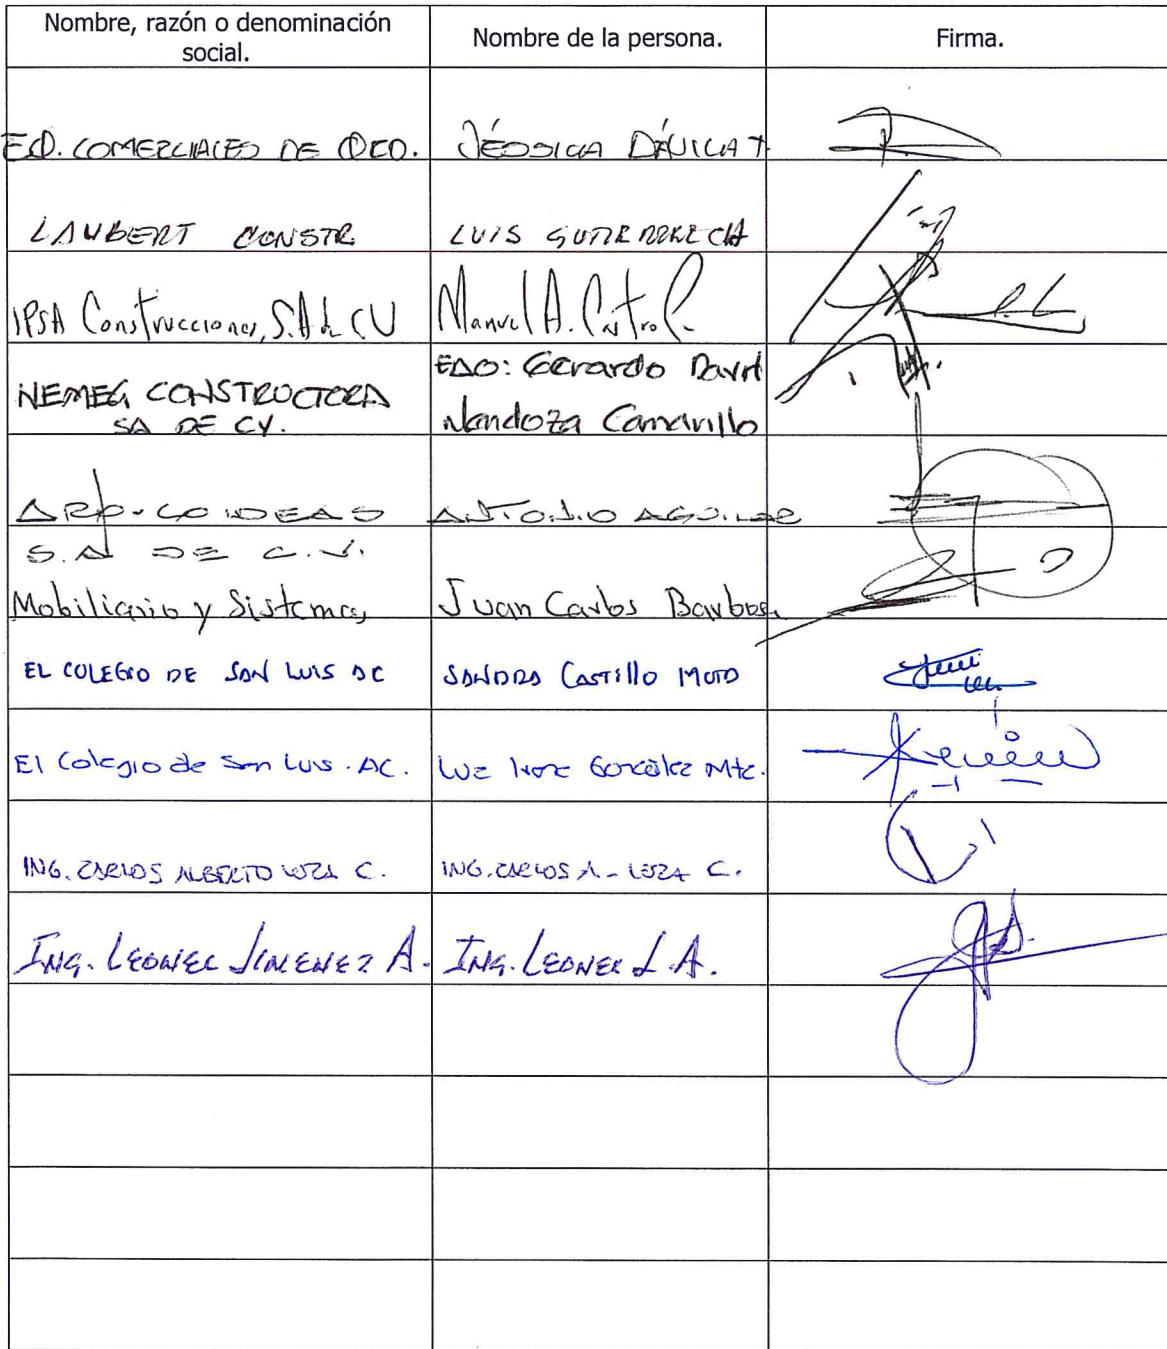 Nombre, razón o denominación
social.
Nombre de la persona.
Firma.
EQ. COMERCIALES DE QRO.
JÉSSICA DÁVILA T.
LAUBERT CONSTR
LUIS
IPSA Construcciones, S.A de CV
Manuel A. Castro C.
NEMEG CONSTRUCTORA
SA DE CV.
Gerardo David
Mendoza Camarillo
ARQ-CO IDEAS
S.A DE C.V.
ANTONIO AGUILAR
Mobiliario y Sistemas
Juan Carlos Barbosa
EL COLEGIO DE SAN LUIS AC
SANDRA CASTILLO MOTA
El Colegio de San Luis. AC.
Luz González Mtz.
ING. CARLOS ALBERTO LOZA C.
ING. CARLOS A. LOZA C.
ING. LEONEL JIMENEZ A.
ING. LEONEL J. A.